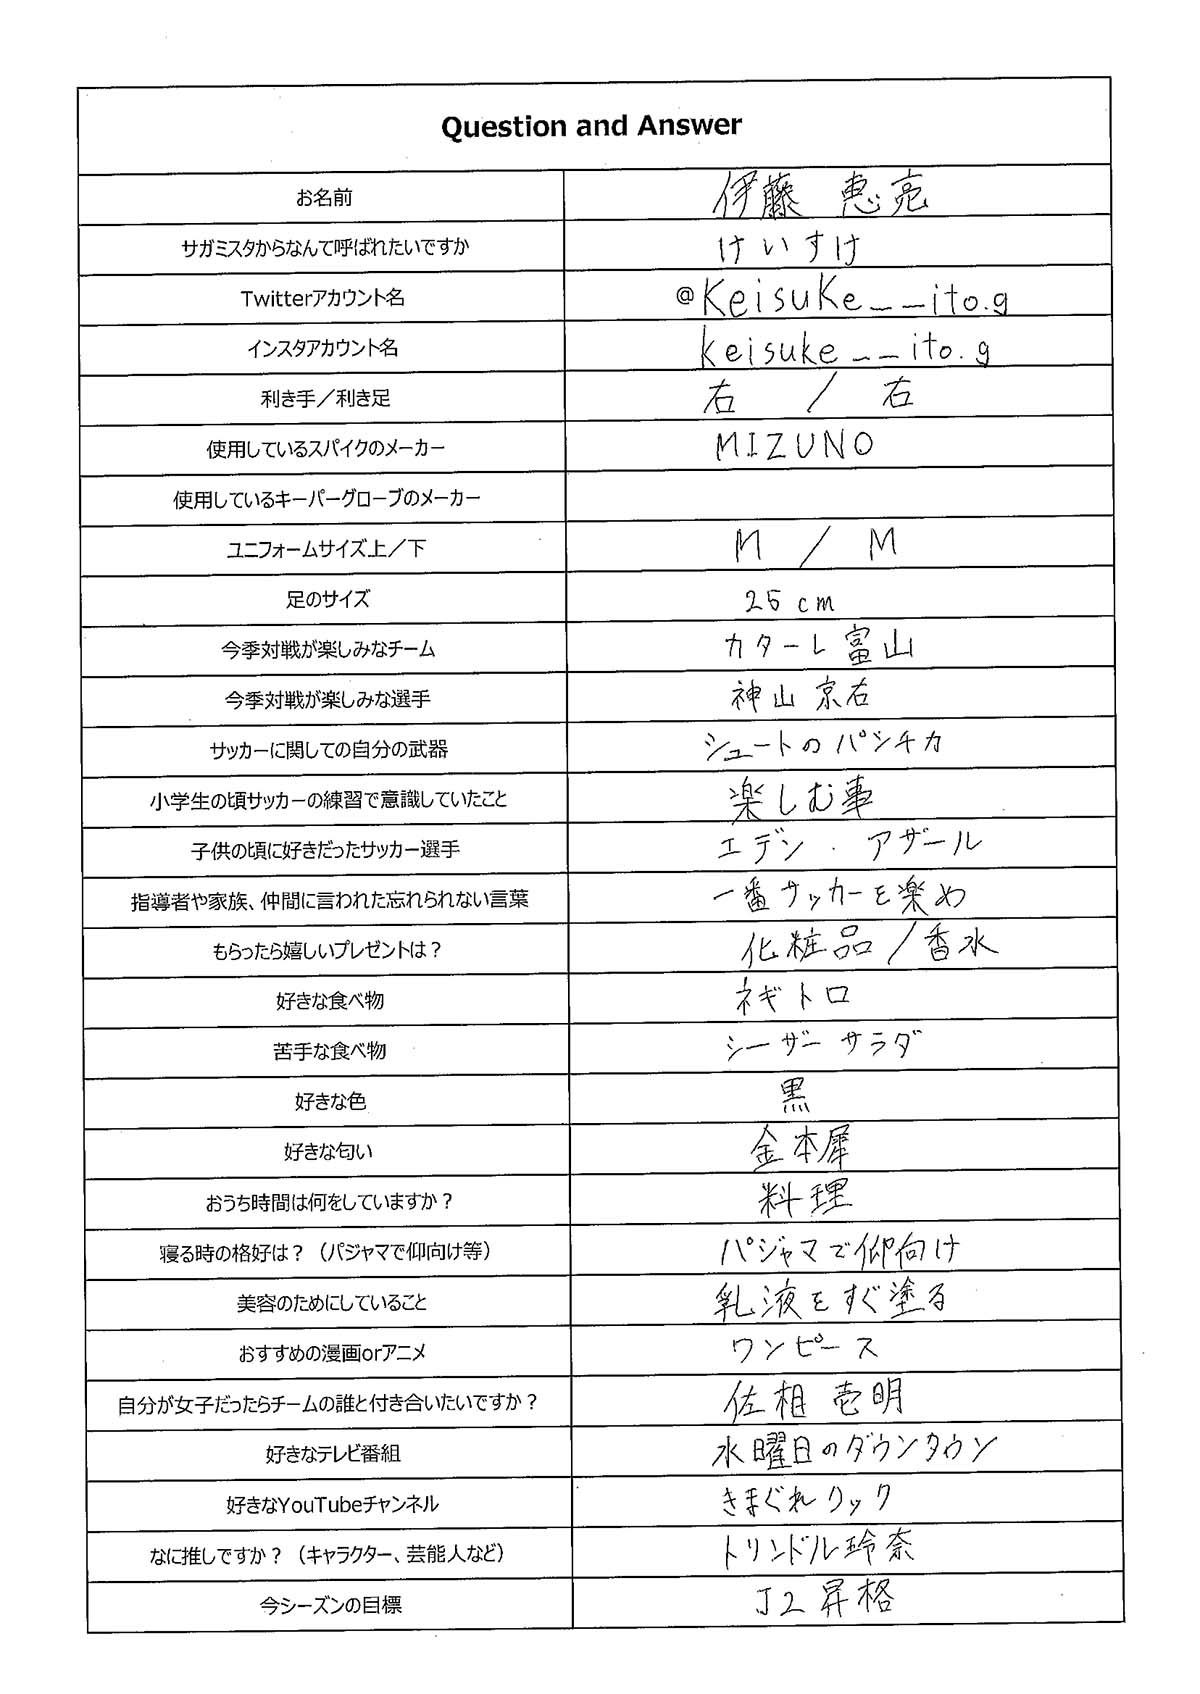 Question and Answer
お名前 伊藤 恵亮
サガミスタからなんて呼ばれたいですか けいすけ
Twitterアカウント名 @keisuke__ito.g
インスタアカウント名 keisuke__ito.g
利き手／利き足 右 / 右
使用しているスパイクのメーカー MIZUNO
使用しているキーパーグローブのメーカー
ユニフォームサイズ上／下 M / M
足のサイズ 25cm
今季対戦が楽しみなチーム カターレ富山
今季対戦が楽しみな選手 神山 京右
サッカーに関しての自分の武器 シュートのパンチ力
小学生の頃サッカーの練習で意識していたこと 楽しむ事
子供の頃に好きだったサッカー選手 エデン．アザール
指導者や家族、仲間に言われた忘れられない言葉 一番サッカーを楽め
もらったら嬉しいプレゼントは？ 化粧品/香水
好きな食べ物 ネギトロ
苦手な食べ物 シーザーサラダ
好きな色 黒
好きな匂い 金木犀
おうち時間は何をしていますか？ 料理
寝る時の格好は？（パジャマで仰向け等） パジャマで仰向け
美容のためにしていること 乳液をすぐ塗る
おすすめの漫画orアニメ ワンピース
自分が女子だったらチームの誰と付き合いたいですか？ 佐相 壱明
好きなテレビ番組 水曜日のダウンタウン
好きなYouTubeチャンネル きまぐれクック
なに推しですか？（キャラクター、芸能人など） トリンドル玲奈
今シーズンの目標 J2昇格